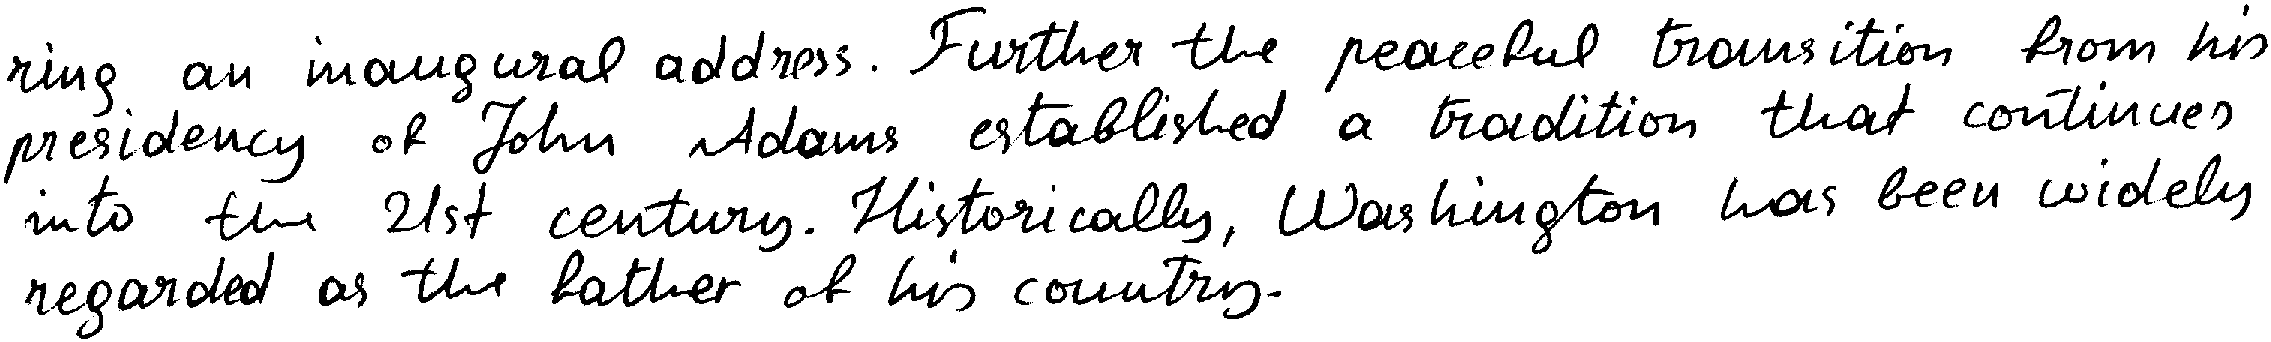 ring an inaugural address. Further the peaceful transition from his
presidency of John Adams established a tradition that continues
into the 21st century. Historically, Washington has been widely
regarded as the father of his country.